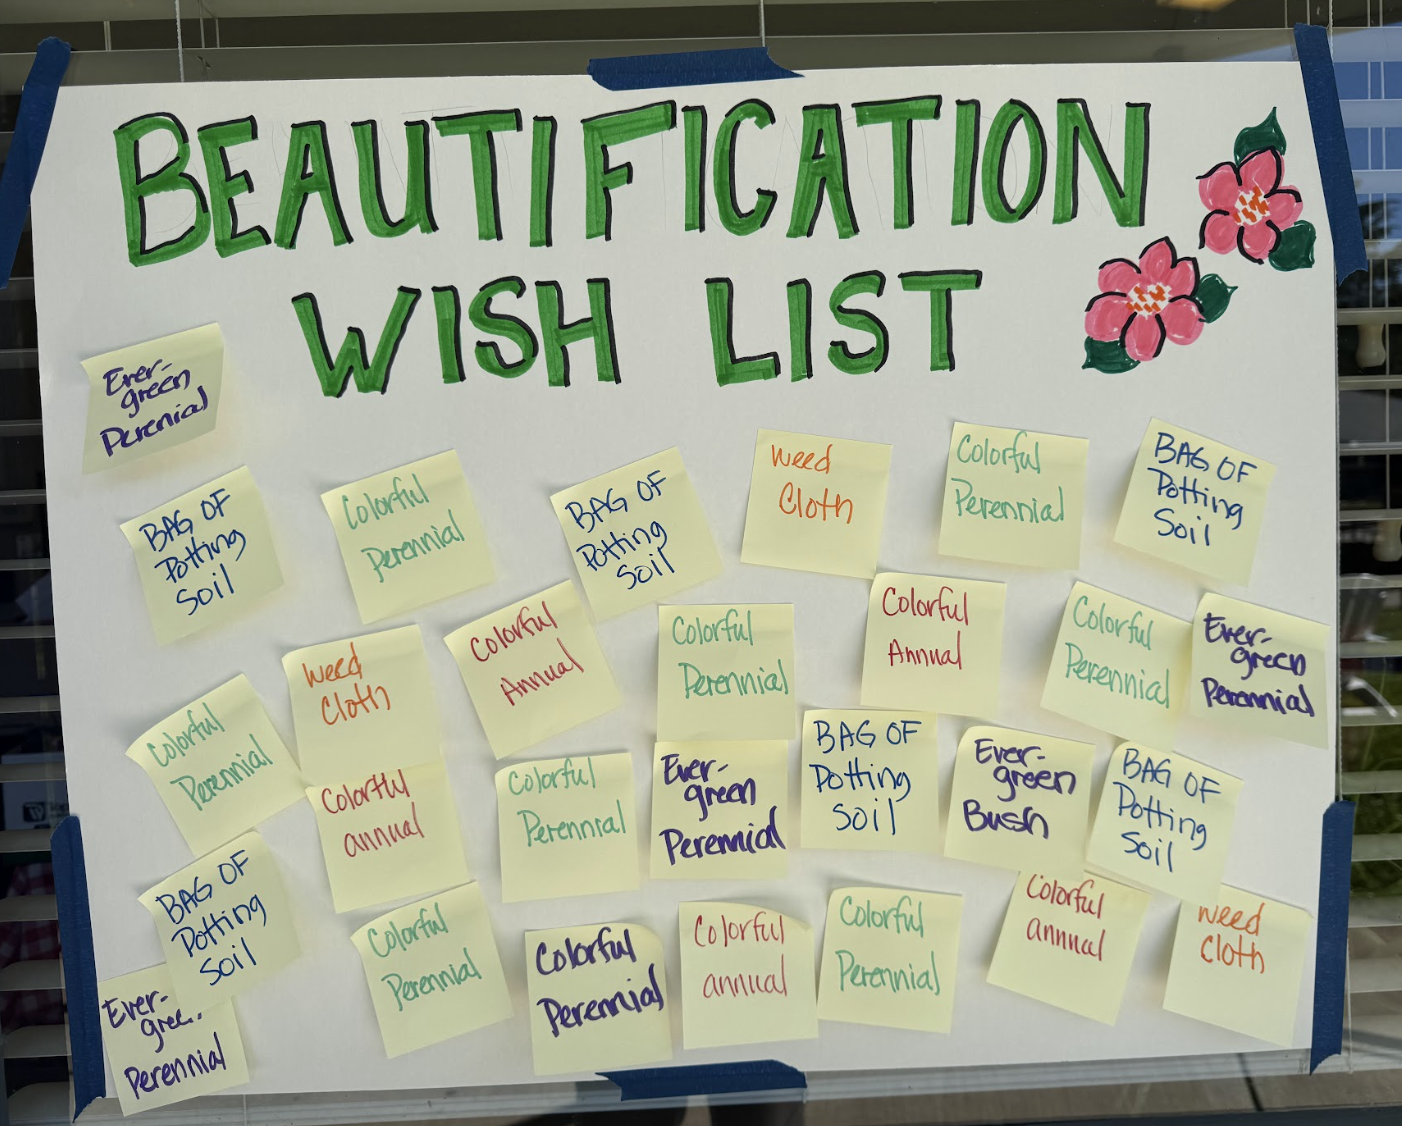 BEAUTIFICATION
WISH LIST
Ever-
green
Perenial
BAG OF
Potting
Soil
Colorful
Perennial
BAG OF
Potting
Soil
Weed
Cloth
Colorful
Perennial
BAG OF
Potting
Soil
Colorful
Perennial
Weed
Cloth
Colorful
Annual
Colorful
Perennial
Colorful
Annual
Colorful
Perennial
Ever-
green
Perennial
Colortul
annual
Colorful
Perennial
Ever-
green
Perennial
BAG OF
Potting
Soil
Ever-
green
Bush
BAG OF
Potting
Soil
BAG OF
Potting
Soil
Ever-
green
Perennial
Colorful
Perennial
Colorful
Perennial
Colorful
annual
Colorful
Perennial
Colorful
annual
Weed
Cloth